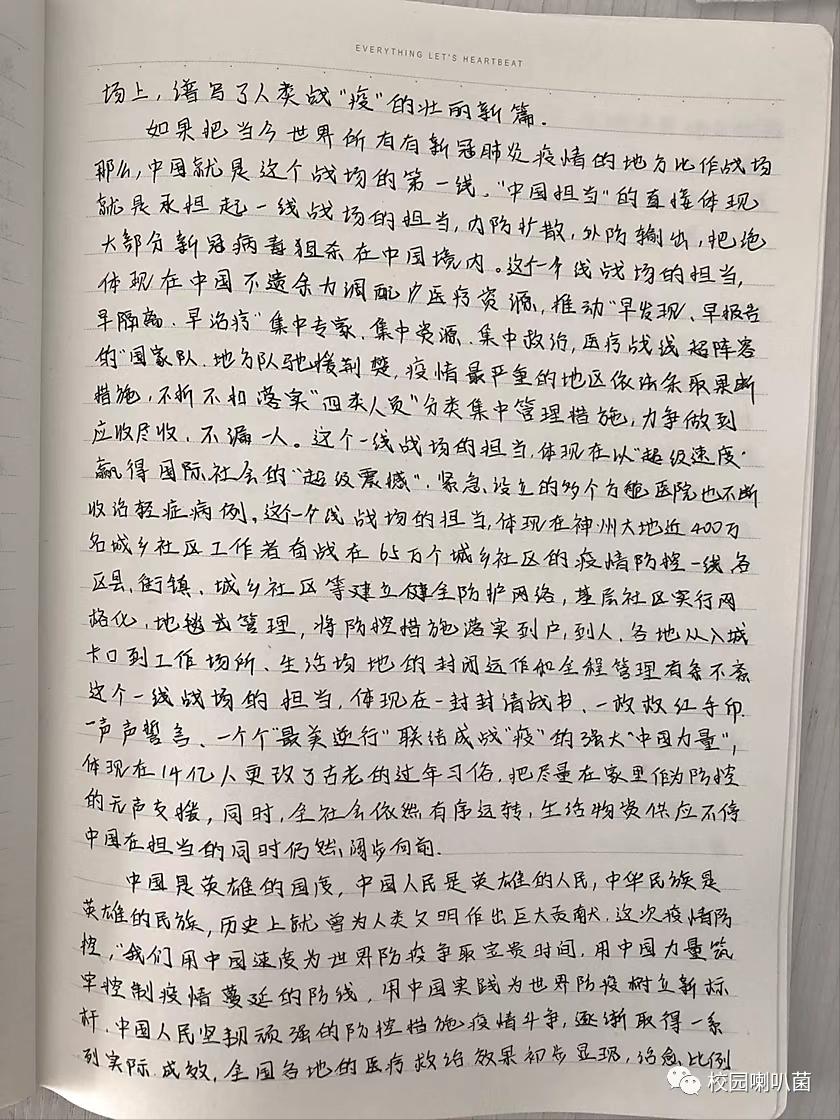 EVERYTHING LET'S HEARTBEAT
场上，谱写了人类战"疫"的壮丽新篇.
如果把当今世界所有有新冠肺炎疫情的地方比作战场
那么,中国就是这个战场的第一线."中国担当"的直接体现
就是承担起一线战场的担当,内防扩散,外防输出,把绝
大部分新冠病毒狙杀在中国境内。这个一线战场的担当,
体现在中国不遗余力调配医疗资源,推动"早发现、早报告
早隔离、早治疗"集中专家、集中资源、集中救治,医疗战线超阵容
的"国家队、地方队驰援荆楚,疫情最严重的地区依法采取果断
措施,不折不扣落实"四类人员"分类集中管理措施,力争做到
应收尽收、不漏一人。这个一线战场的担当,体现在以"超级速度"
赢得国际社会的"超级震撼".紧急设立的多个方舱医院也不断
收治轻症病例。这个一线战场的担当,体现在神州大地近400万
名城乡社区工作者奋战在65万个城乡社区的疫情防控一线各
区县、街镇、城乡社区等建立健全防护网络,基层社区实行网
格化、地毯式管理,将防控措施落实到户,到人.各地从入城
卡口到工作场所、生活场地的封闭运作和全程管理有条不紊
这个一线战场的担当,体现在一封封请战书、一枚枚红手印
一声声誓言、一个个"最美逆行"联结成战"疫"的强大"中国力量",
体现在14亿人更改了古老的过年习俗,把尽量在家里作为防控
的无声支援,同时,全社会依然有序运转,生活物资供应不停
中国在担当的同时仍然阔步向前.
中国是英雄的国度,中国人民是英雄的人民,中华民族是
英雄的民族,历史上就曾为人类文明作出巨大贡献.这次疫情防
控,"我们用中国速度为世界防疫争取宝贵时间,用中国力量筑
牢控制疫情蔓延的防线,用中国实践为世界防疫树立新标
杆.中国人民坚韧顽强的防控措施疫情斗争,逐渐取得一系
列实际成效,全国各地的医疗救治效果初步显现,治愈比例
校园喇叭菌